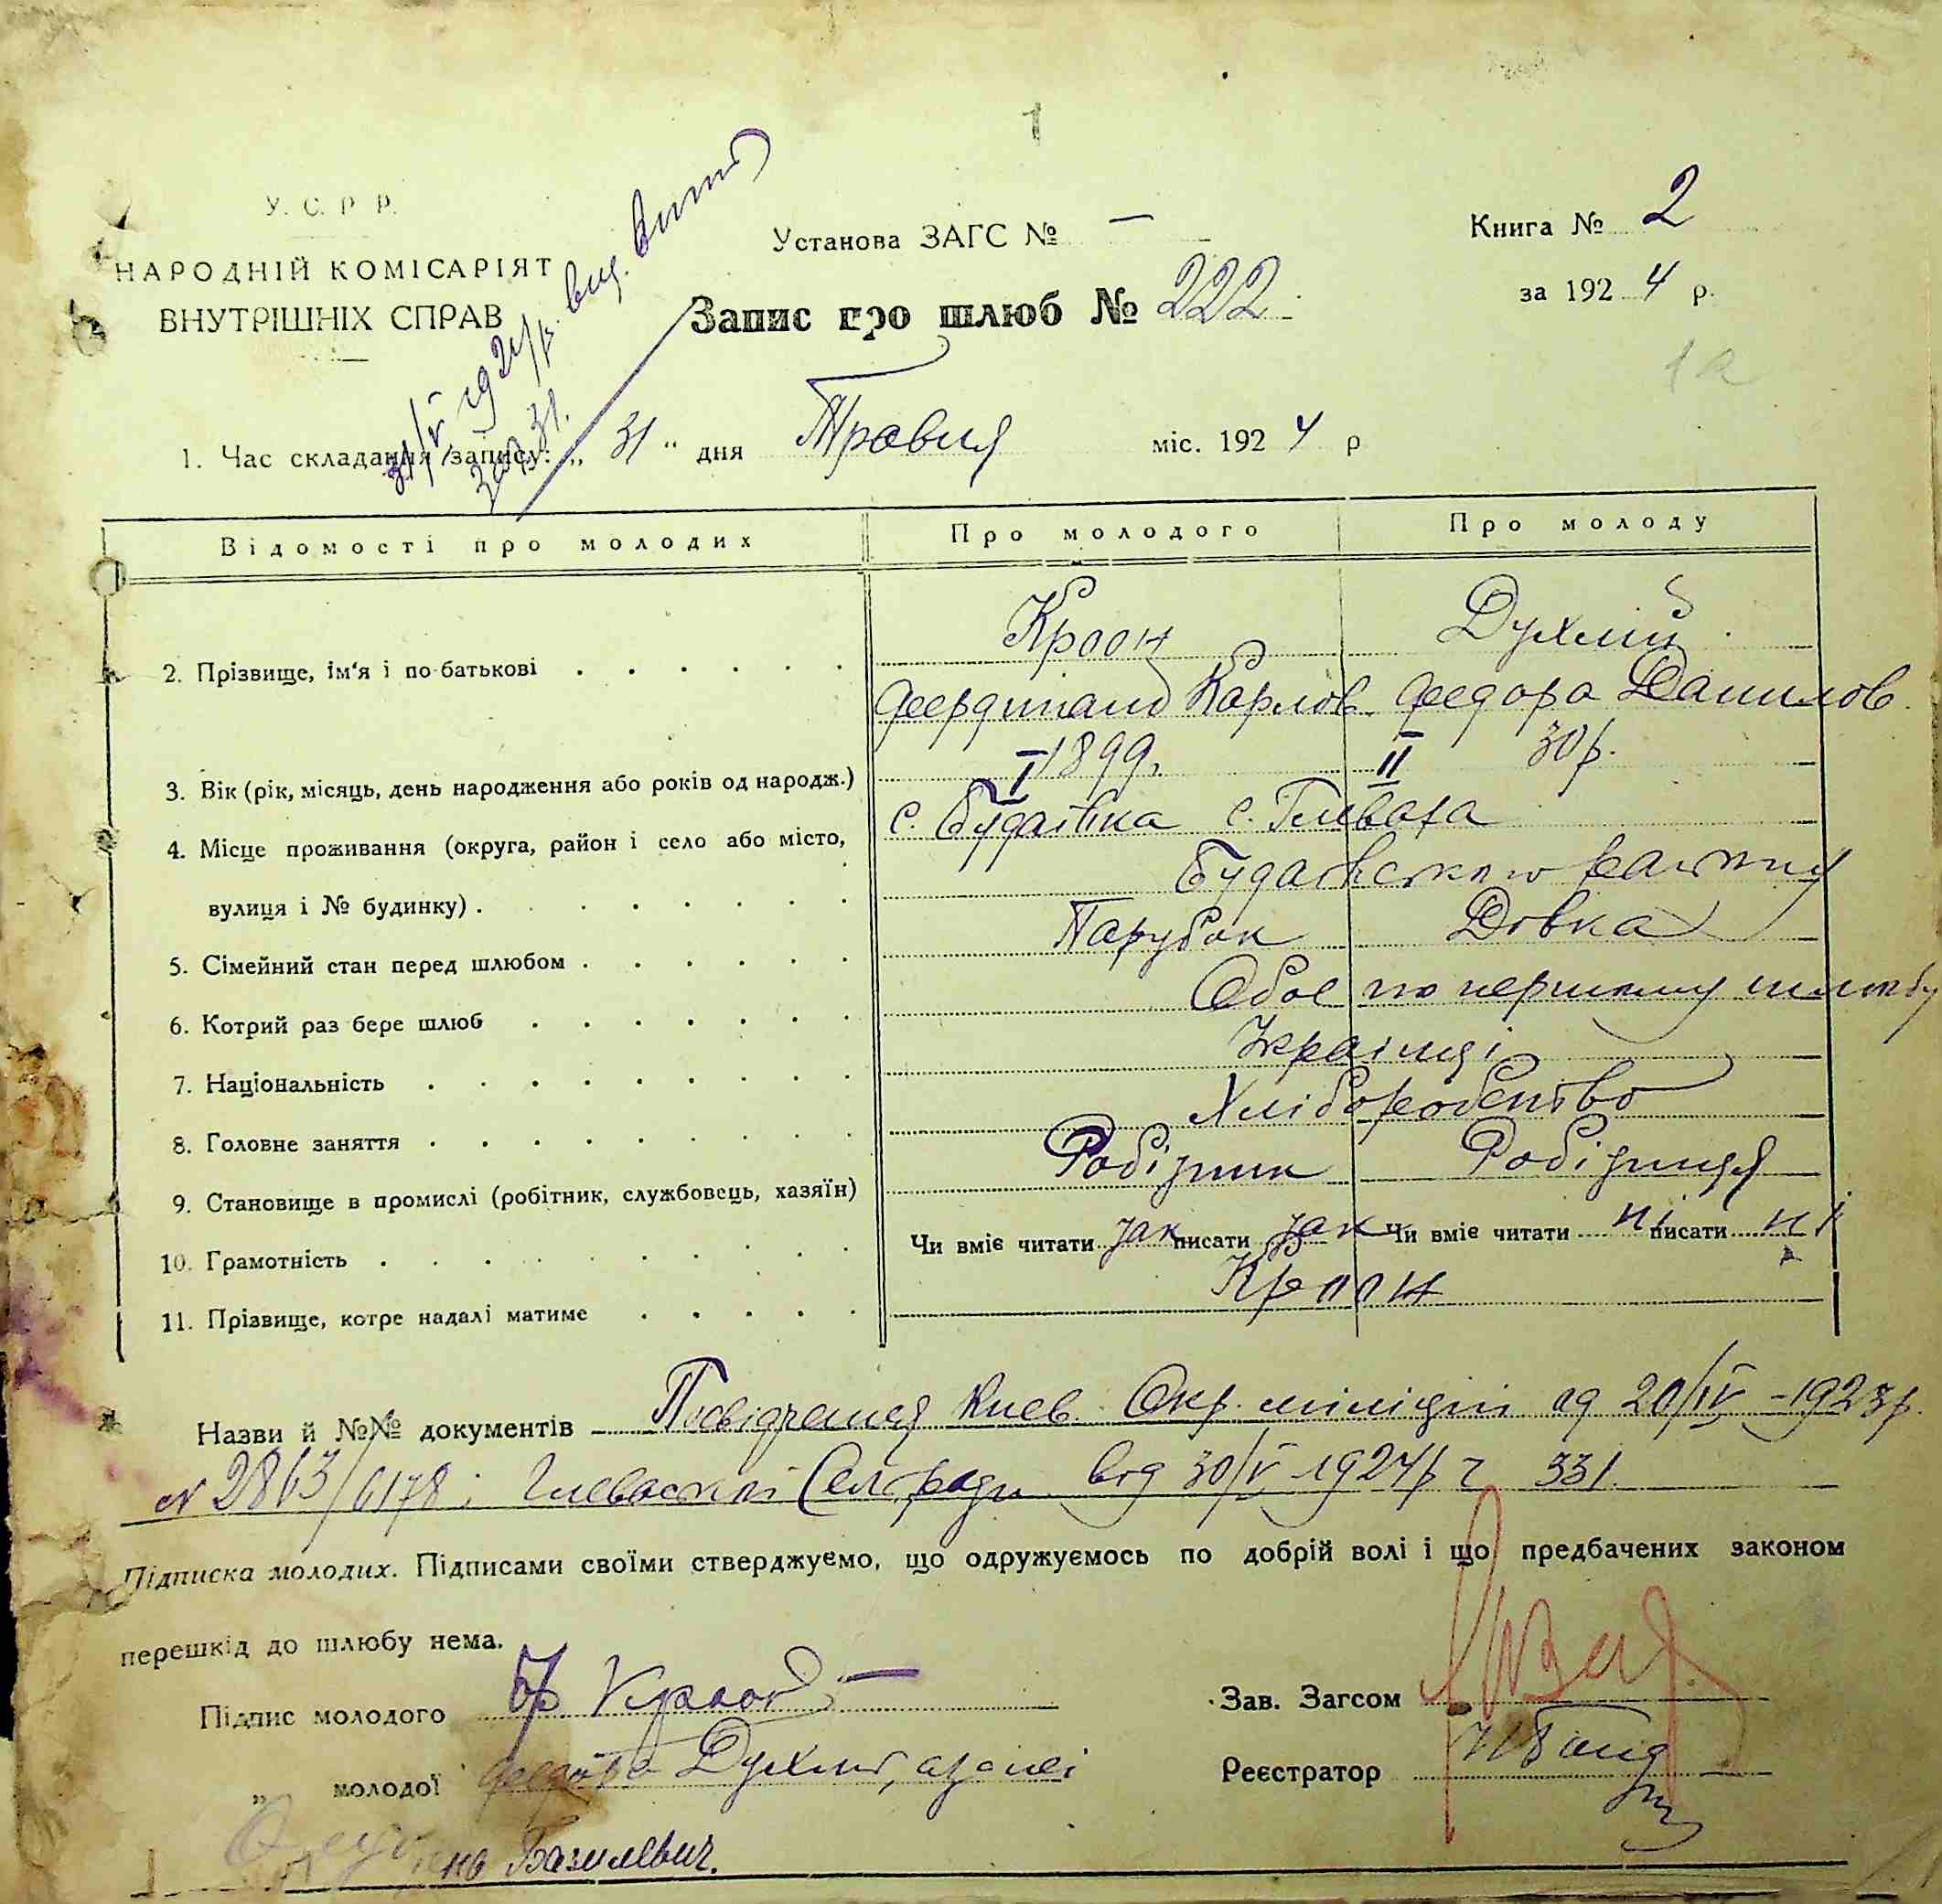 1
У. С. Р. Р.
НАРОДНІЙ КОМІСАРІЯТ
ВНУТРІШНІХ СПРАВ
Установа ЗАГС № —
Книга № 2
за 1924 р.
Запис про шлюб № 222
1а
31/V 1924 р. вид.
зап. 31.
1. Час складання запису: „ 31 “ дня Травня міс. 1924 р
Відомості про молодих Про молодого Про молоду
2. Прізвище, ім‘я і по-батькові Кроон Духлій
Фердинанд Карлов. Федора Данилов.
3. Вік (рік, місяць, день народження або років од народж.) I 1899. II 30 р.
4. Місце проживання (округа, район і село або місто, с. Будаївка с. Глеваха
вулиця і № будинку) Будаївського
5. Сімейний стан перед шлюбом Парубок Дівка
6. Котрий раз бере шлюб Обоє по першому шлюбу
7. Національність Українці
8. Головне заняття Хліборобство
9. Становище в промислі (робітник, службовець, хазяїн) Робітник Робітниця
10. Грамотність Чи вміє читати так писати так Чи вміє читати ні писати ні
11. Прізвище, котре надалі матиме Кроон
Назви й №№ документів Посвідчення Киев. Окр. міліції од 20/IV – 1923 р.
№ 2863/6178; Глевахскої Сел. ради від 30/V 1924 р ч 331.
Підписка молодих. Підписами своїми стверджуємо, що одружуємось по добрій волі і що предбачених законом
перешкід до шлюбу нема.
Підпис молодого
„ молодої Федора Духлій,
Зав. Загсом
Реєстратор
Базилевич.